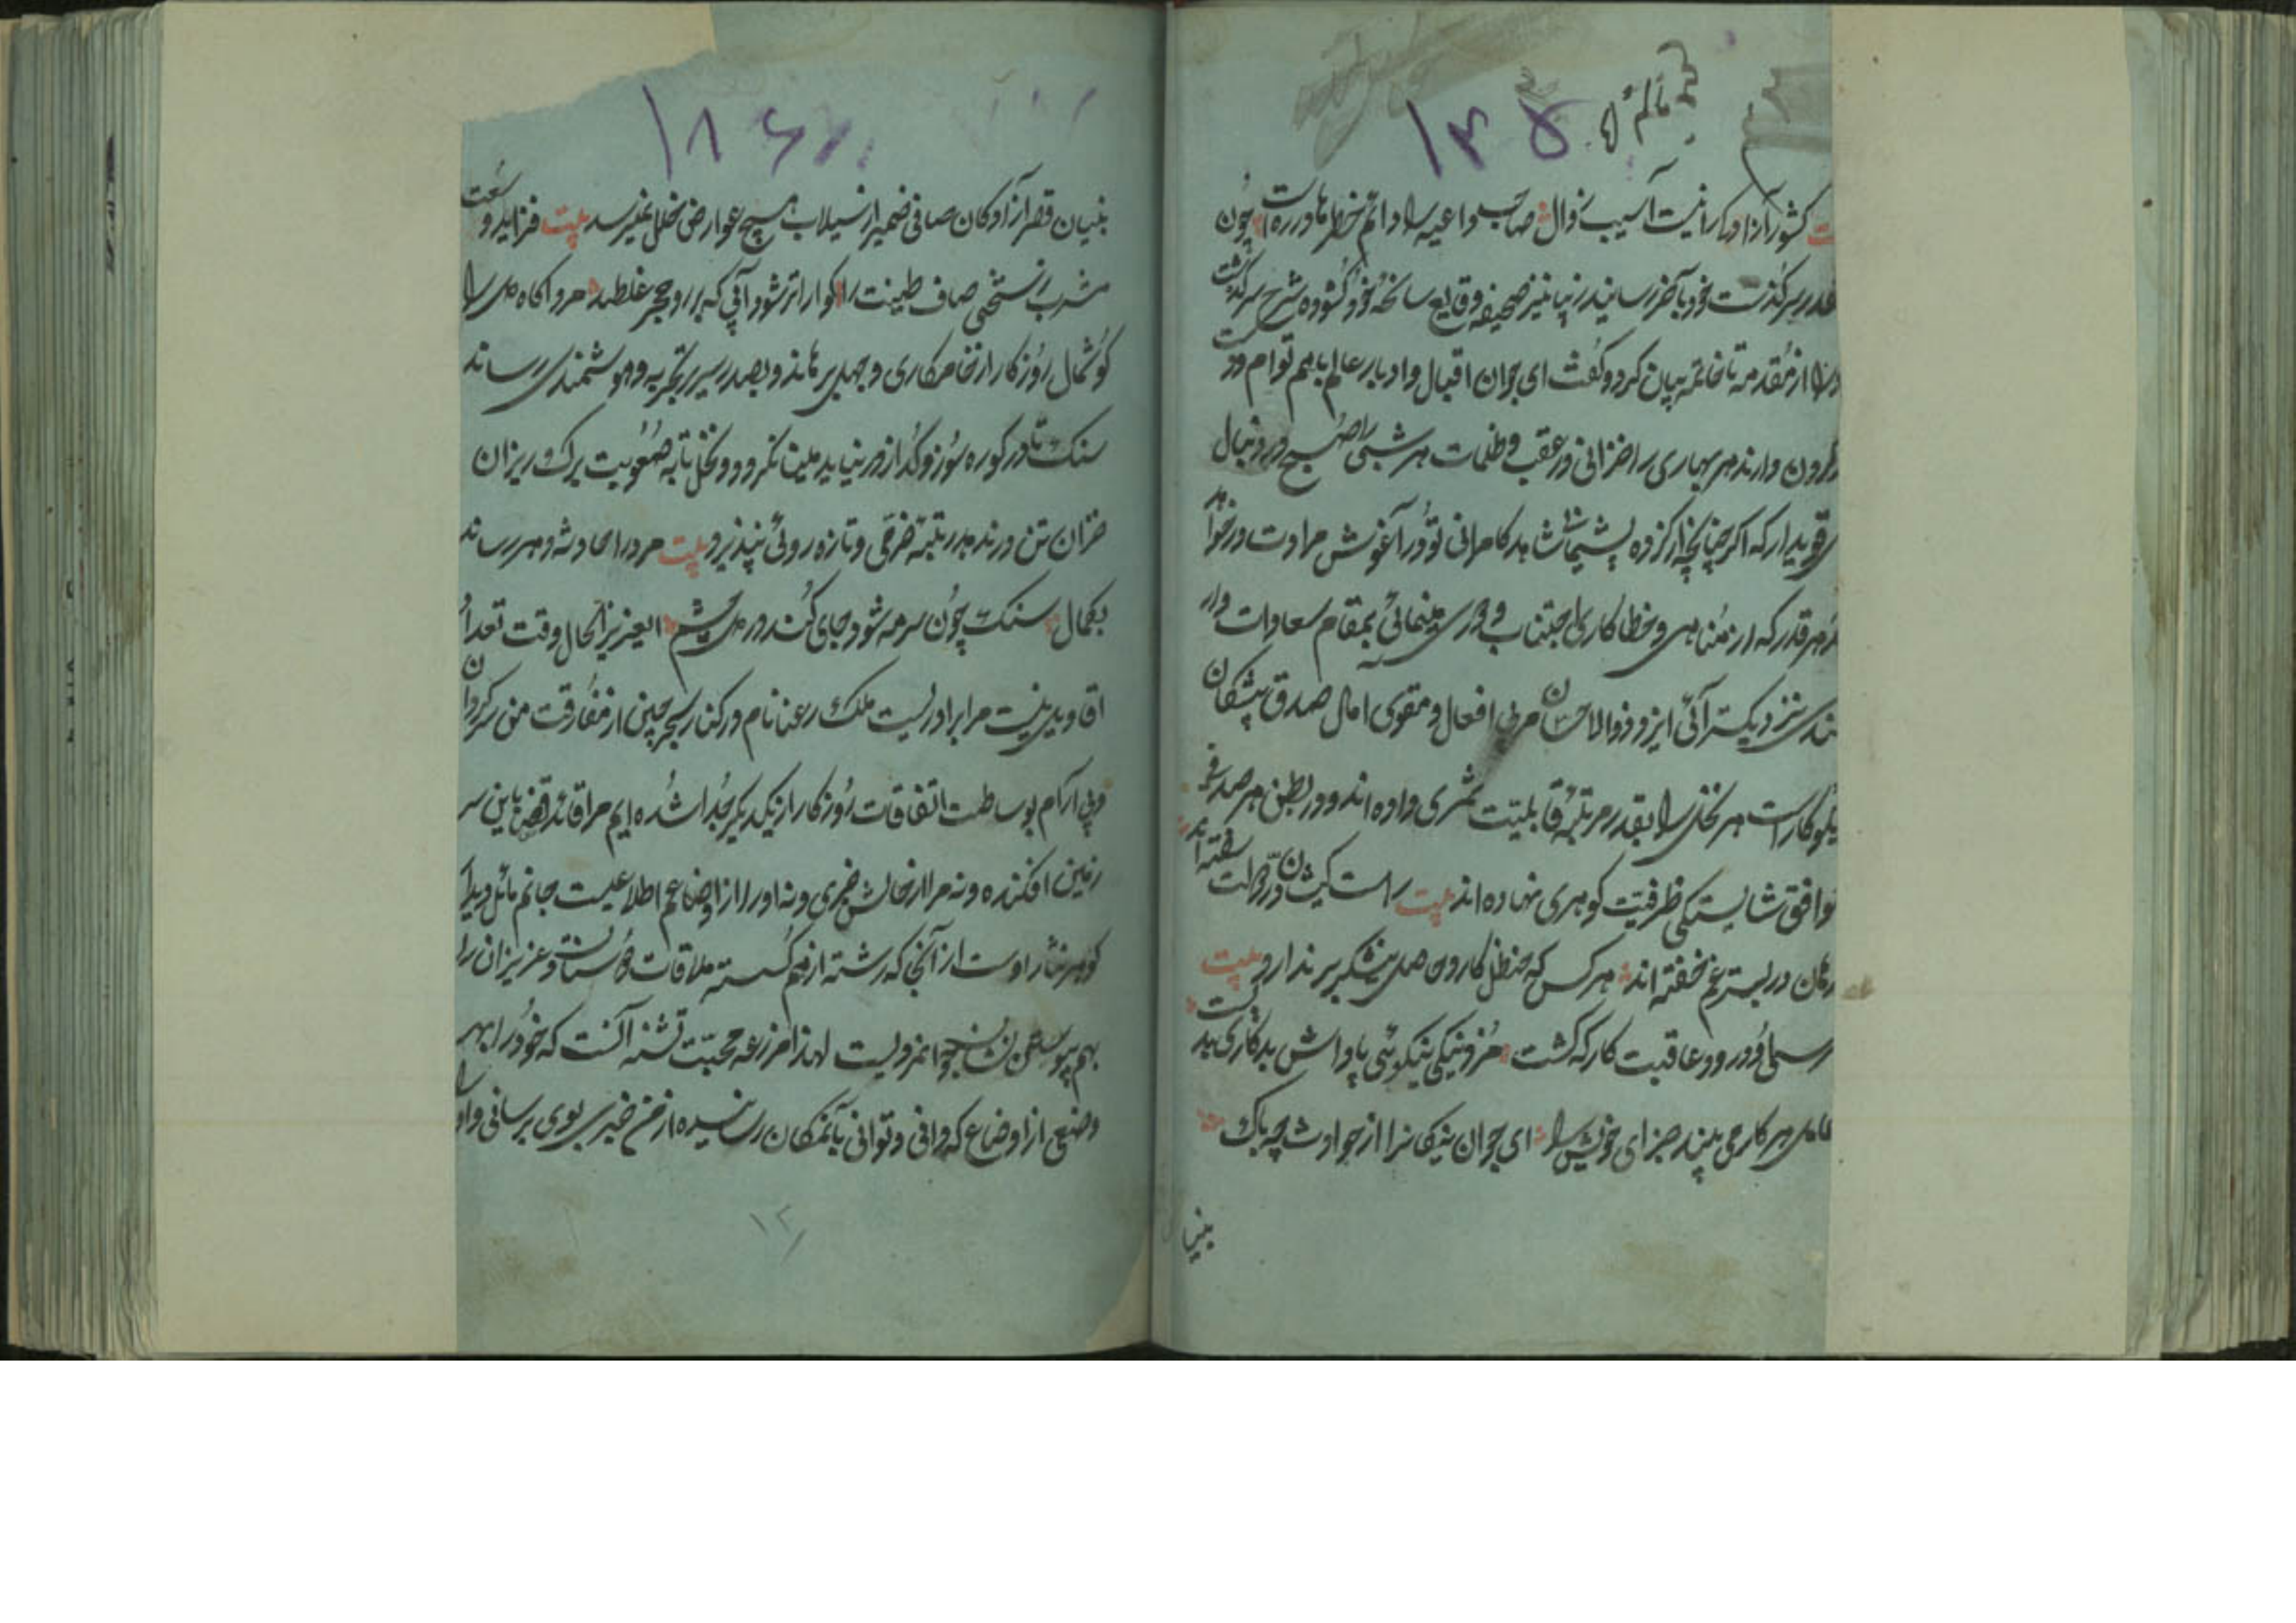 ۱۳۵
کشور آزادکار نیست آسیب زوال صاحب داعیه را دائم خطرها در ره است چون
سرگذشت خود بآخر رسانید نیز صحیفه وقایع سانحهٔ خود گشوده شرح سرگذشت
را از مقدمه تا خاتمه بیان کرد و گفت ای جوان اقبال و ادبار عالم باهم توام و در
گردون دارند هر بهاری را خزانی در عقب و ظلمات هر شبی را صبح در دنبال
قوی دار که اگر چنانچه از کرده پشیمان شاهد کامرانی تو در آغوش مرادت درخواهد
هر قدر که از مناهی و خطاکاری اجتناب ورزی رهنمائی بمقام سعادات وار
نزدیکتر آئی ایزد ذوالاحسان مربی افعال و مقوی آمال صدق پیشگان
نیکوکار است هر نخلی را بقدر مرتبهٔ قابلیت ثمری داده اند و در بطن هر صدفی
توافق شایستگی ظرفیت گوهری نهاده اند بیت راست کیشان در دولت سفته اند
در بستر غم خفته اند هر کس که حنظل کارد حاصل نیشکر بر ندارد بیت
درود عاقبت کار که کشت مزد نیکی نیکوئی پاداش بدکاری بدیست
عامل هر کار می بیند جزای خویش را ای جوان نیکان را از حوادث چه باک
بنیا
۱۸۶
بنیان قصر آزادگان صافی ضمیر از سیلاب هیچ عوارض خلل نمیرسد بیت فزاید وسعت
مشرب ز سختی صاف طینت را گواراتر شود آبی که بر روی حجر غلطد مرد آگاه دل را
گوشمال روزگار از خامکاری و جهل برهاند و بصدر سریر تجربه و هوشمندی رساند
سنگ تا در کوره سوز و گداز در نیاید ملین نگردد و نخل تا به صعوبت برگ ریزان
خزان تن در ندهد رتبهٔ خرمی و تازه روئی نپذیرد بیت مرد را حادثهٔ دهر رساند
بکمال سنگ چون سرمه شود جای کند در دل چشم ای عزیز الحال وقت تعداد
اقاویل نیست مرا برادریست ملک رعنا نام در کنار بحر چین از مفارقت من سرگردان
و بی آرام بوساطت اتفاقات روزگار از یکدیگر جدا شده ایم مرا قائد قضا باین سر
زمین افکنده و نه مرا از حالش خبری و نه او را از اوضاعم اطلاعیست جانم مائل دیدار
گوهر نثار اوست از آنجا که رشته از هم گسسته ملاقات دوستان و عزیزان را
بهم پیوستن نشان جوانمردیست لهذا مزرعه محبت تشنه آنست که خود را بهر
وضعی از اوضاع که دانی و توانی بآنمکان رسانیده از من خبری بوی برسانی و او
۱۲